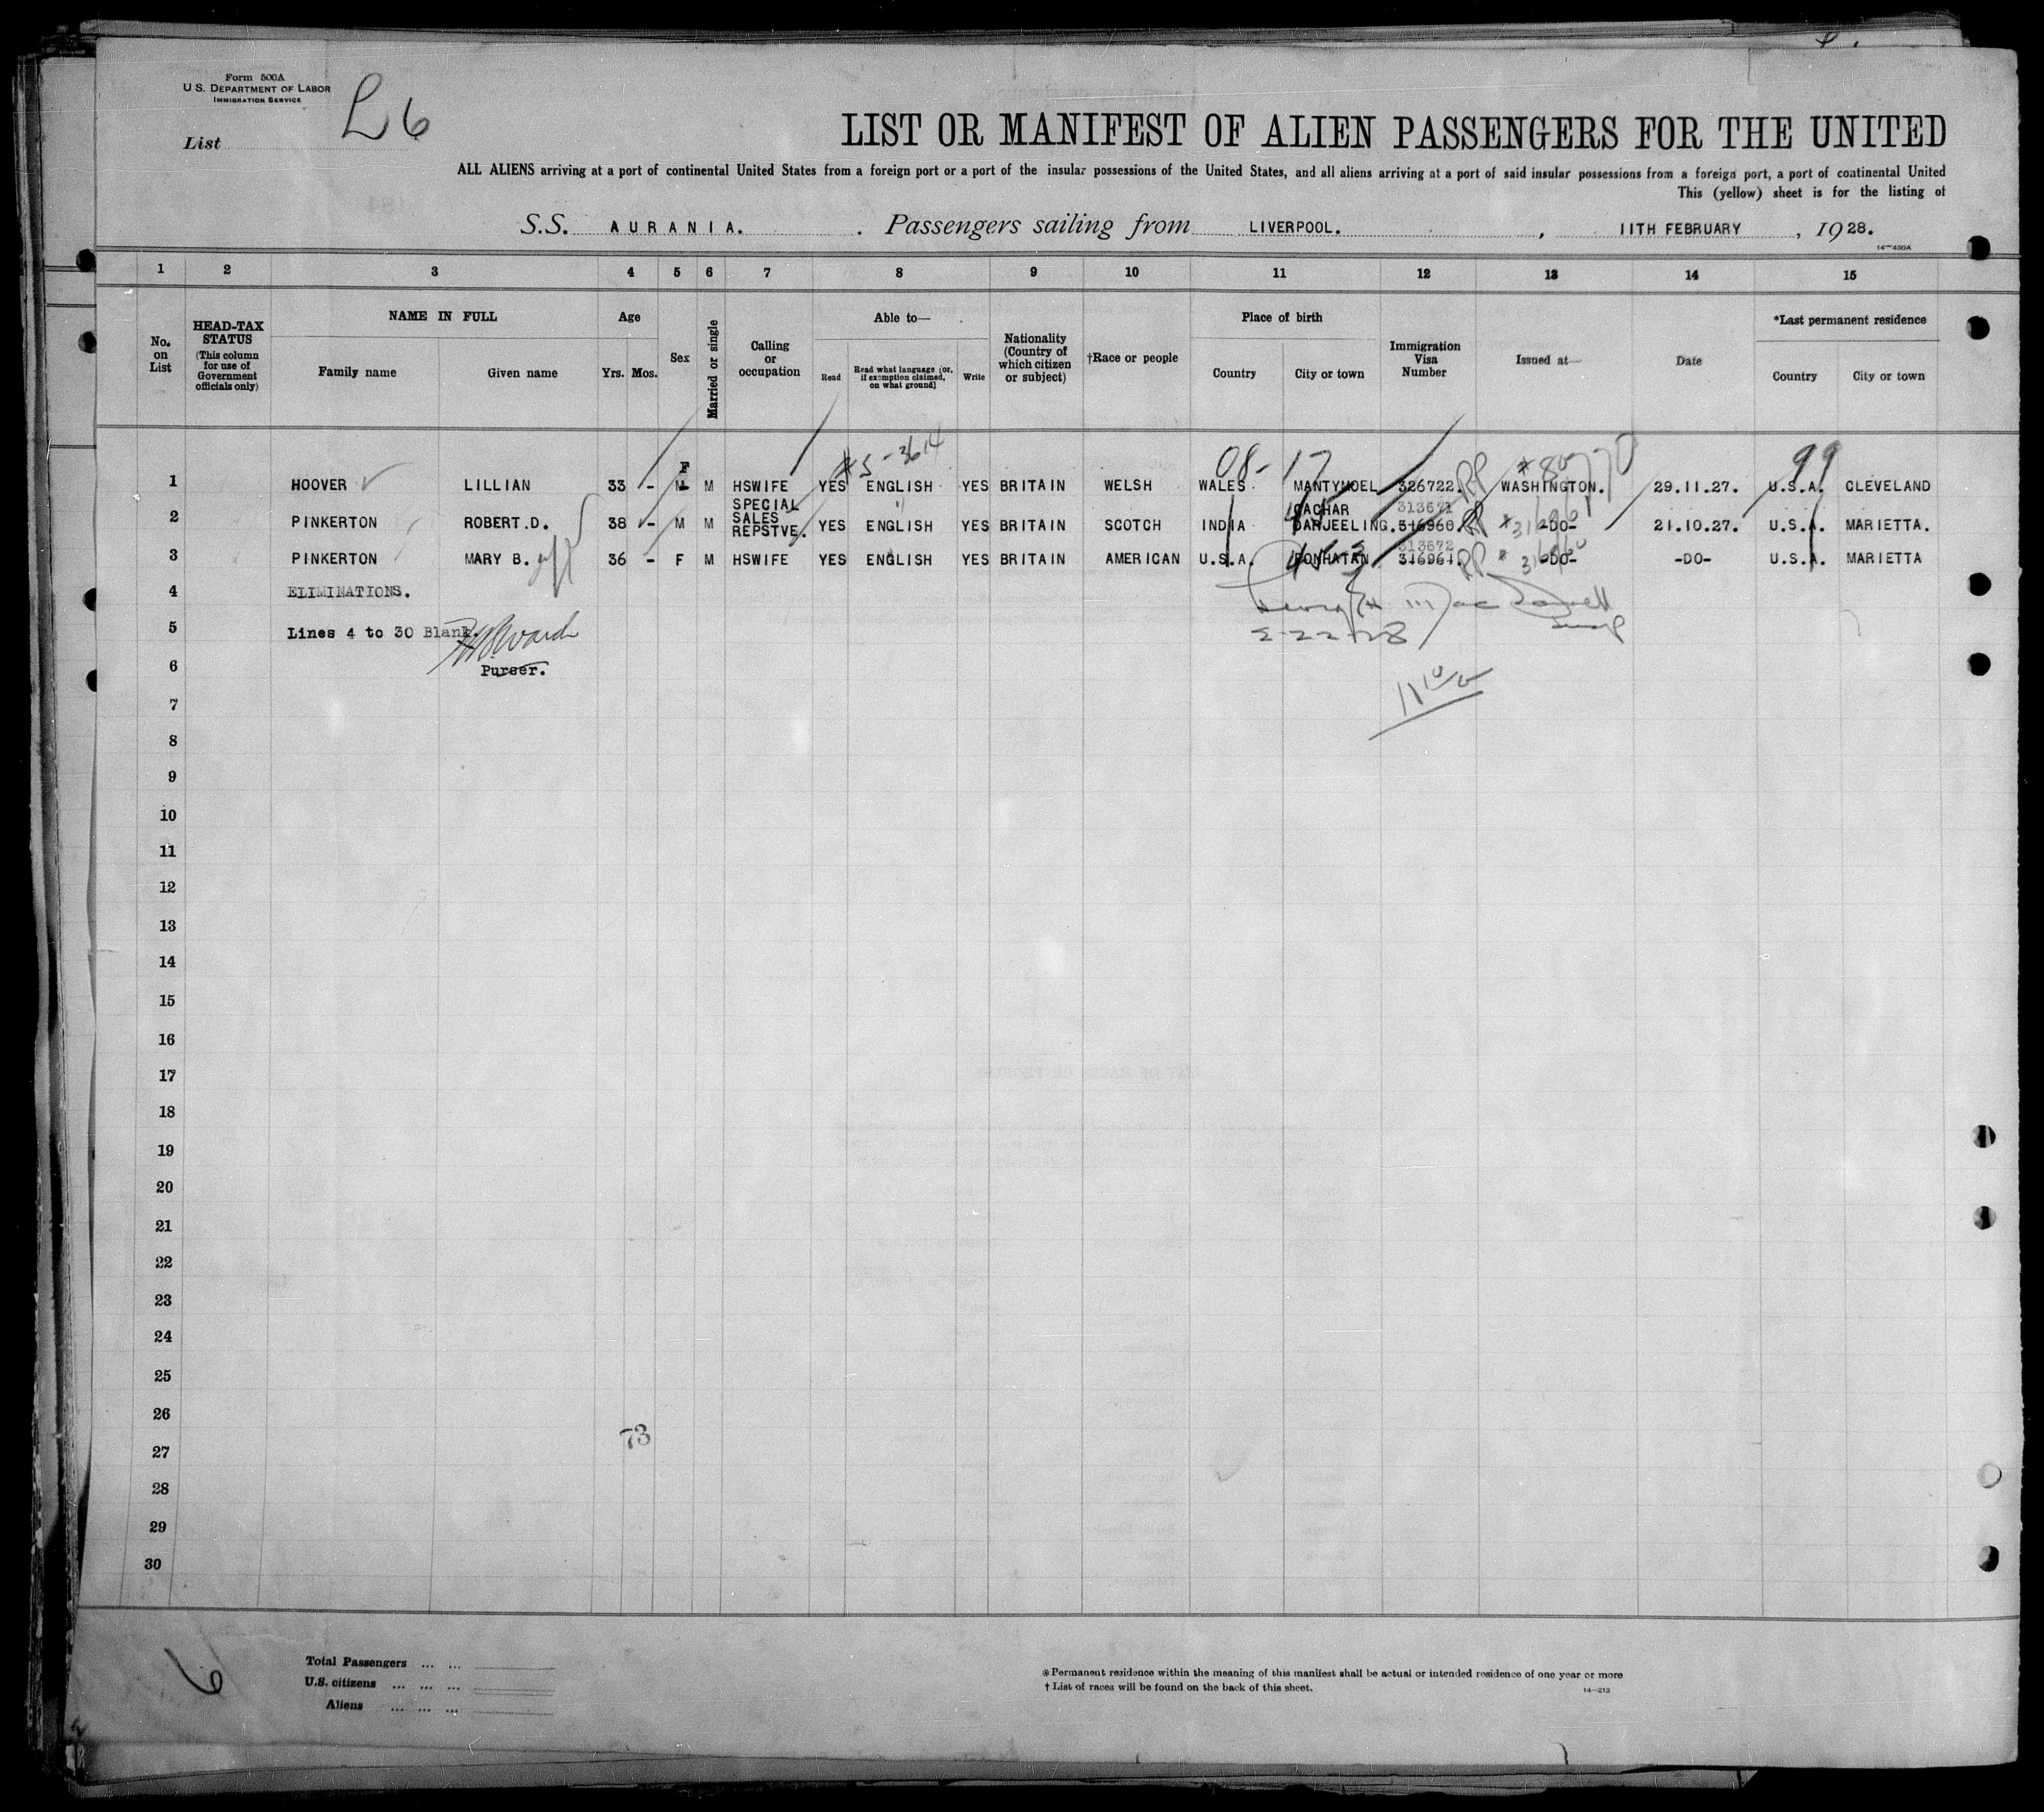 Form 500A
U.S. DEPARTMENT OF LABOR
IMMIGRATION SERVICE
List L 6
LIST OR MANIFEST OF ALIEN PASSENGERS FOR THE UNITED
ALL ALIENS arriving at a port of continental United States from a foreign port or a port of the insular possessions of the United States, and all aliens arriving at a port of said insular possessions from a foreign port, a port of continental United
This (yellow) sheet is for the listing of
S.S. AURANIA. Passengers sailing from LIVERPOOL. , 11TH FEBRUARY , 1928.
14—430A
1 2 3 4 5 6 7 8 9 10 11 12 13 14 15
No. on List
HEAD-TAX STATUS (This column for use of Government officials only)
NAME IN FULL
Family name Given name
Age
Yrs. Mos.
Sex
Married or single
Calling or occupation
Able to—
Read Read what language (or, if exemption claimed, on what ground) Write
Nationality (Country of which citizen or subject)
†Race or people
Place of birth
Country City or town
Immigration Visa Number
Issued at—
Date
*Last permanent residence
Country City or town
#5-3614 08-17 99
F
1 HOOVER LILLIAN 33 - M M HSWIFE YES ENGLISH YES BRITAIN WELSH WALES. MANTYMOEL 326722. RP WASHINGTON. 29.11.27. U.S.A. CLEVELAND
SPECIAL CACHAR 313671
2 PINKERTON ROBERT.D. 38 - M M SALES REPSTVE. YES ENGLISH YES BRITAIN SCOTCH INDIA DARJEELING. 316960. RP -DO- 21.10.27. U.S.A. MARIETTA.
313672
3 PINKERTON MARY B. 36 - F M HSWIFE YES ENGLISH YES BRITAIN AMERICAN U.S.A. 316961. RP -DO- -DO- U.S.A. MARIETTA
4 ELIMINATIONS.
5 Lines 4 to 30 Blank.
2-22-28
6 Purser.
7
8
9
10
11
12
13
14
15
16
17
18
19
20
21
22
23
24
25
26
73
27
28
29
30
6
Total Passengers ... ...
U.S. citizens ... ... ...
Aliens ... ... ...
*Permanent residence within the meaning of this manifest shall be actual or intended residence of one year or more
† List of races will be found on the back of this sheet.
14—213